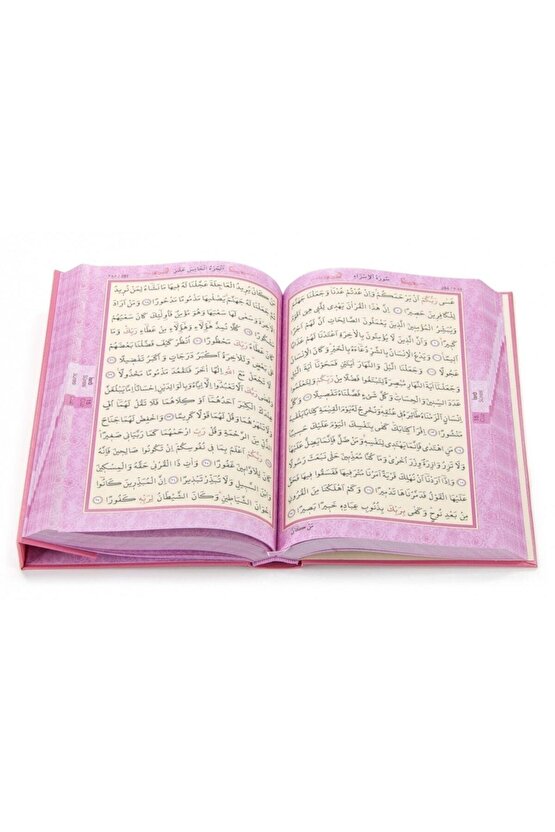 سُورَةُ الْاِسْرَاءِ
عَسٰى رَبُّكُمْ اَنْ يَرْحَمَكُمْ وَاِنْ عُدْتُمْ عُدْنَا وَجَعَلْنَا جَهَنَّمَ
لِلْكَافِرِينَ حَصِيرًا اِنَّ هٰذَا الْقُرْاٰنَ يَهْدِى لِلَّتِى هِىَ اَقْوَمُ
وَيُبَشِّرُ الْمُؤْمِنِينَ الَّذِينَ يَعْمَلُونَ الصَّالِحَاتِ اَنَّ لَهُمْ اَجْرًا
كَبِيرًا وَاَنَّ الَّذِينَ لَا يُؤْمِنُونَ بِالْاٰخِرَةِ اَعْتَدْنَا لَهُمْ عَذَابًا
اَلِيمًا وَيَدْعُ الْاِنْسَانُ بِالشَّرِّ دُعَاءَهُ بِالْخَيْرِ وَكَانَ الْاِنْسَانُ
عَجُولًا وَجَعَلْنَا الَّيْلَ وَالنَّهَارَ اٰيَتَيْنِ فَمَحَوْنَا اٰيَةَ الَّيْلِ
وَجَعَلْنَا اٰيَةَ النَّهَارِ مُبْصِرَةً لِتَبْتَغُوا فَضْلًا مِنْ رَبِّكُمْ وَلِتَعْلَمُوا
عَدَدَ السِّنِينَ وَالْحِسَابَ وَكُلَّ شَىْءٍ فَصَّلْنَاهُ تَفْصِيلًا وَكُلَّ
اِنْسَانٍ اَلْزَمْنَاهُ طَائِرَهُ فِى عُنُقِهِ وَنُخْرِجُ لَهُ يَوْمَ الْقِيٰمَةِ كِتَابًا يَلْقٰيهُ
مَنْشُورًا اِقْرَاْ كِتَابَكَ كَفٰى بِنَفْسِكَ الْيَوْمَ عَلَيْكَ حَسِيبًا
مَنِ اهْتَدٰى فَاِنَّمَا يَهْتَدِى لِنَفْسِهِ وَمَنْ ضَلَّ فَاِنَّمَا يَضِلُّ عَلَيْهَا
وَلَا تَزِرُ وَازِرَةٌ وِزْرَ اُخْرٰى وَمَا كُنَّا مُعَذِّبِينَ حَتّٰى نَبْعَثَ رَسُولًا
وَاِذَا اَرَدْنَا اَنْ نُهْلِكَ قَرْيَةً اَمَرْنَا مُتْرَفِيهَا فَفَسَقُوا فِيهَا فَحَقَّ
عَلَيْهَا الْقَوْلُ فَدَمَّرْنَاهَا تَدْمِيرًا وَكَمْ اَهْلَكْنَا مِنَ الْقُرُونِ
مِنْ بَعْدِ نُوحٍ وَكَفٰى بِرَبِّكَ بِذُنُوبِ عِبَادِهِ خَبِيرًا بَصِيرًا
مَنْ كَانَ
اَلْجُزْءُ الْخَامِسَ عَشَرَ
مَنْ كَانَ يُرِيدُ الْعَاجِلَةَ عَجَّلْنَا لَهُ فِيهَا مَا نَشَاءُ لِمَنْ نُرِيدُ
ثُمَّ جَعَلْنَا لَهُ جَهَنَّمَ يَصْلٰيهَا مَذْمُومًا مَدْحُورًا وَمَنْ اَرَادَ
الْاٰخِرَةَ وَسَعٰى لَهَا سَعْيَهَا وَهُوَ مُؤْمِنٌ فَاُولٰئِكَ كَانَ سَعْيُهُمْ
مَشْكُورًا كُلًّا نُمِدُّ هٰؤُلَاءِ وَهٰؤُلَاءِ مِنْ عَطَاءِ رَبِّكَ وَمَا
كَانَ عَطَاءُ رَبِّكَ مَحْظُورًا اُنْظُرْ كَيْفَ فَضَّلْنَا بَعْضَهُمْ
عَلٰى بَعْضٍ وَلَلْاٰخِرَةُ اَكْبَرُ دَرَجَاتٍ وَاَكْبَرُ تَفْضِيلًا
لَا تَجْعَلْ مَعَ اللّٰهِ اِلٰهًا اٰخَرَ فَتَقْعُدَ مَذْمُومًا مَخْذُولًا
وَقَضٰى رَبُّكَ اَلَّا تَعْبُدُوا اِلَّا اِيَّاهُ وَبِالْوَالِدَيْنِ اِحْسَانًا اِمَّا يَبْلُغَنَّ
عِنْدَكَ الْكِبَرَ اَحَدُهُمَا اَوْ كِلَاهُمَا فَلَا تَقُلْ لَهُمَا اُفٍّ
وَلَا تَنْهَرْهُمَا وَقُلْ لَهُمَا قَوْلًا كَرِيمًا وَاخْفِضْ لَهُمَا جَنَاحَ
الذُّلِّ مِنَ الرَّحْمَةِ وَقُلْ رَبِّ ارْحَمْهُمَا كَمَا رَبَّيَانِى صَغِيرًا
رَبُّكُمْ اَعْلَمُ بِمَا فِى نُفُوسِكُمْ اِنْ تَكُونُوا صَالِحِينَ فَاِنَّهُ
كَانَ لِلْاَوَّابِينَ غَفُورًا وَاٰتِ ذَا الْقُرْبٰى حَقَّهُ وَالْمِسْكِينَ
وَابْنَ السَّبِيلِ وَلَا تُبَذِّرْ تَبْذِيرًا اِنَّ الْمُبَذِّرِينَ كَانُوا
اِخْوَانَ الشَّيَاطِينِ وَكَانَ الشَّيْطَانُ لِرَبِّهِ كَفُورًا